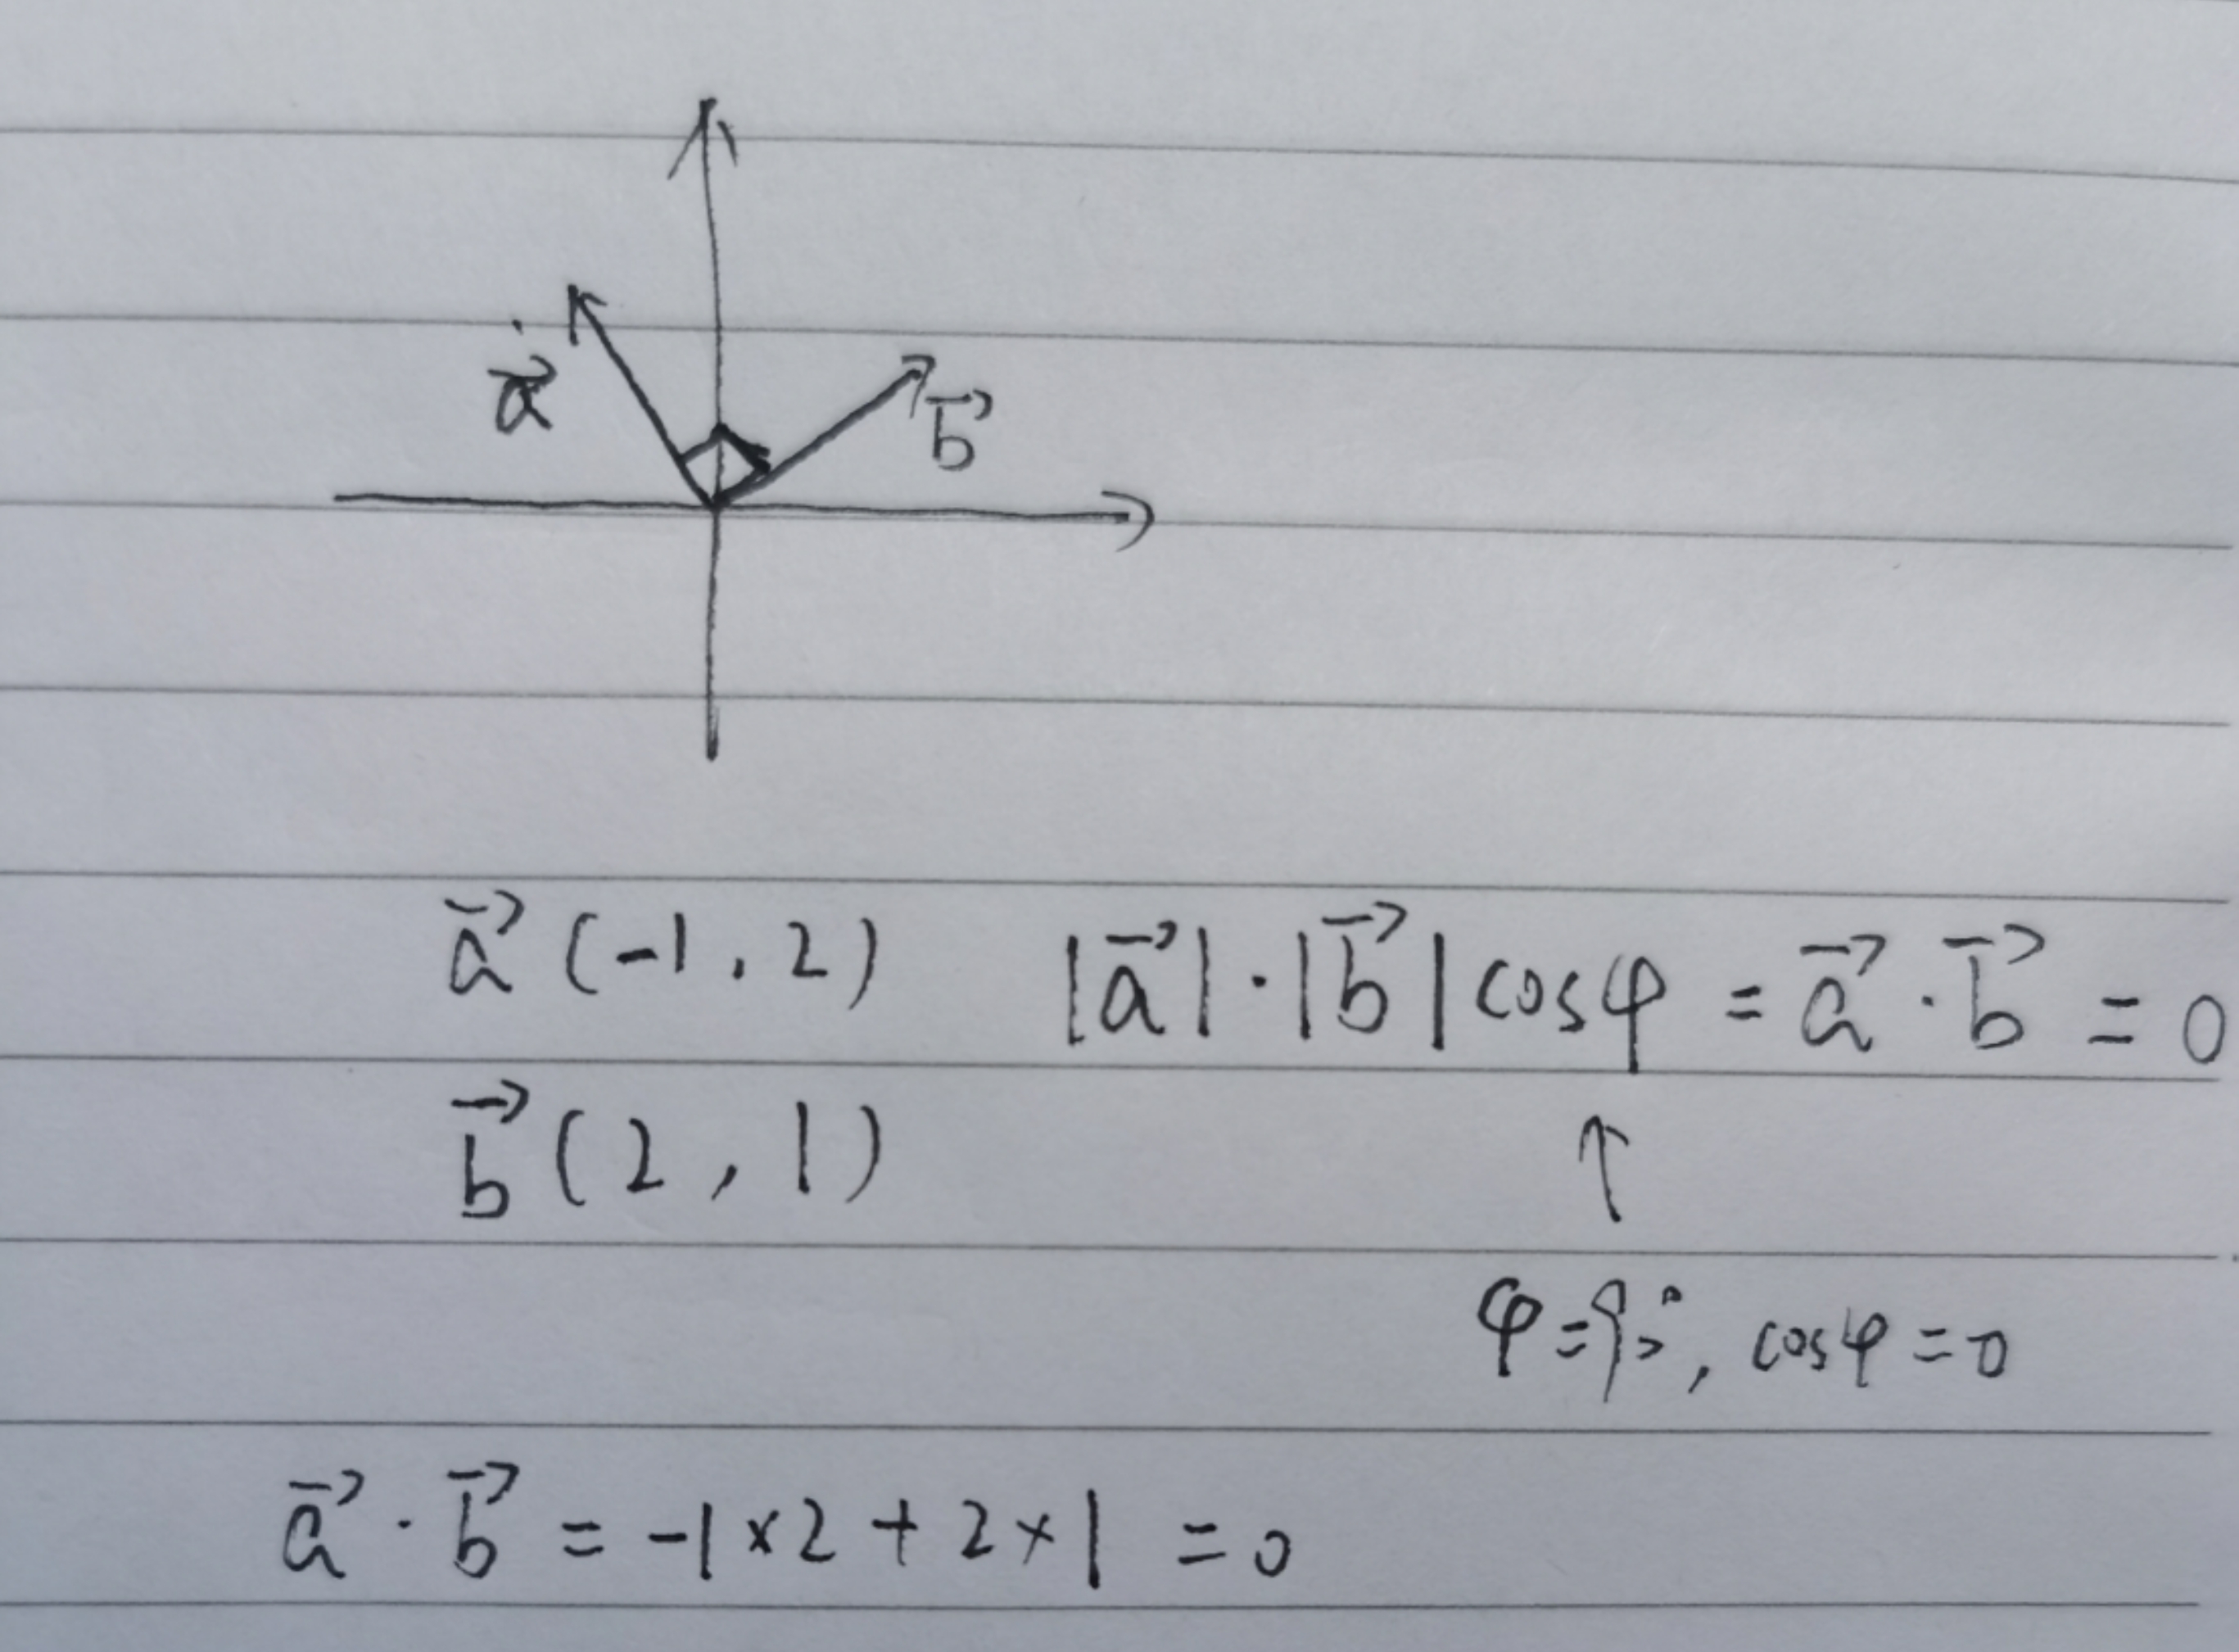 a⃗
b⃗
a⃗ (-1, 2) |a⃗|·|b⃗|cosφ = a⃗·b⃗ = 0
b⃗ (2, 1)
↑
φ=90°, cosφ=0
a⃗·b⃗ = -1×2+2×1 =0